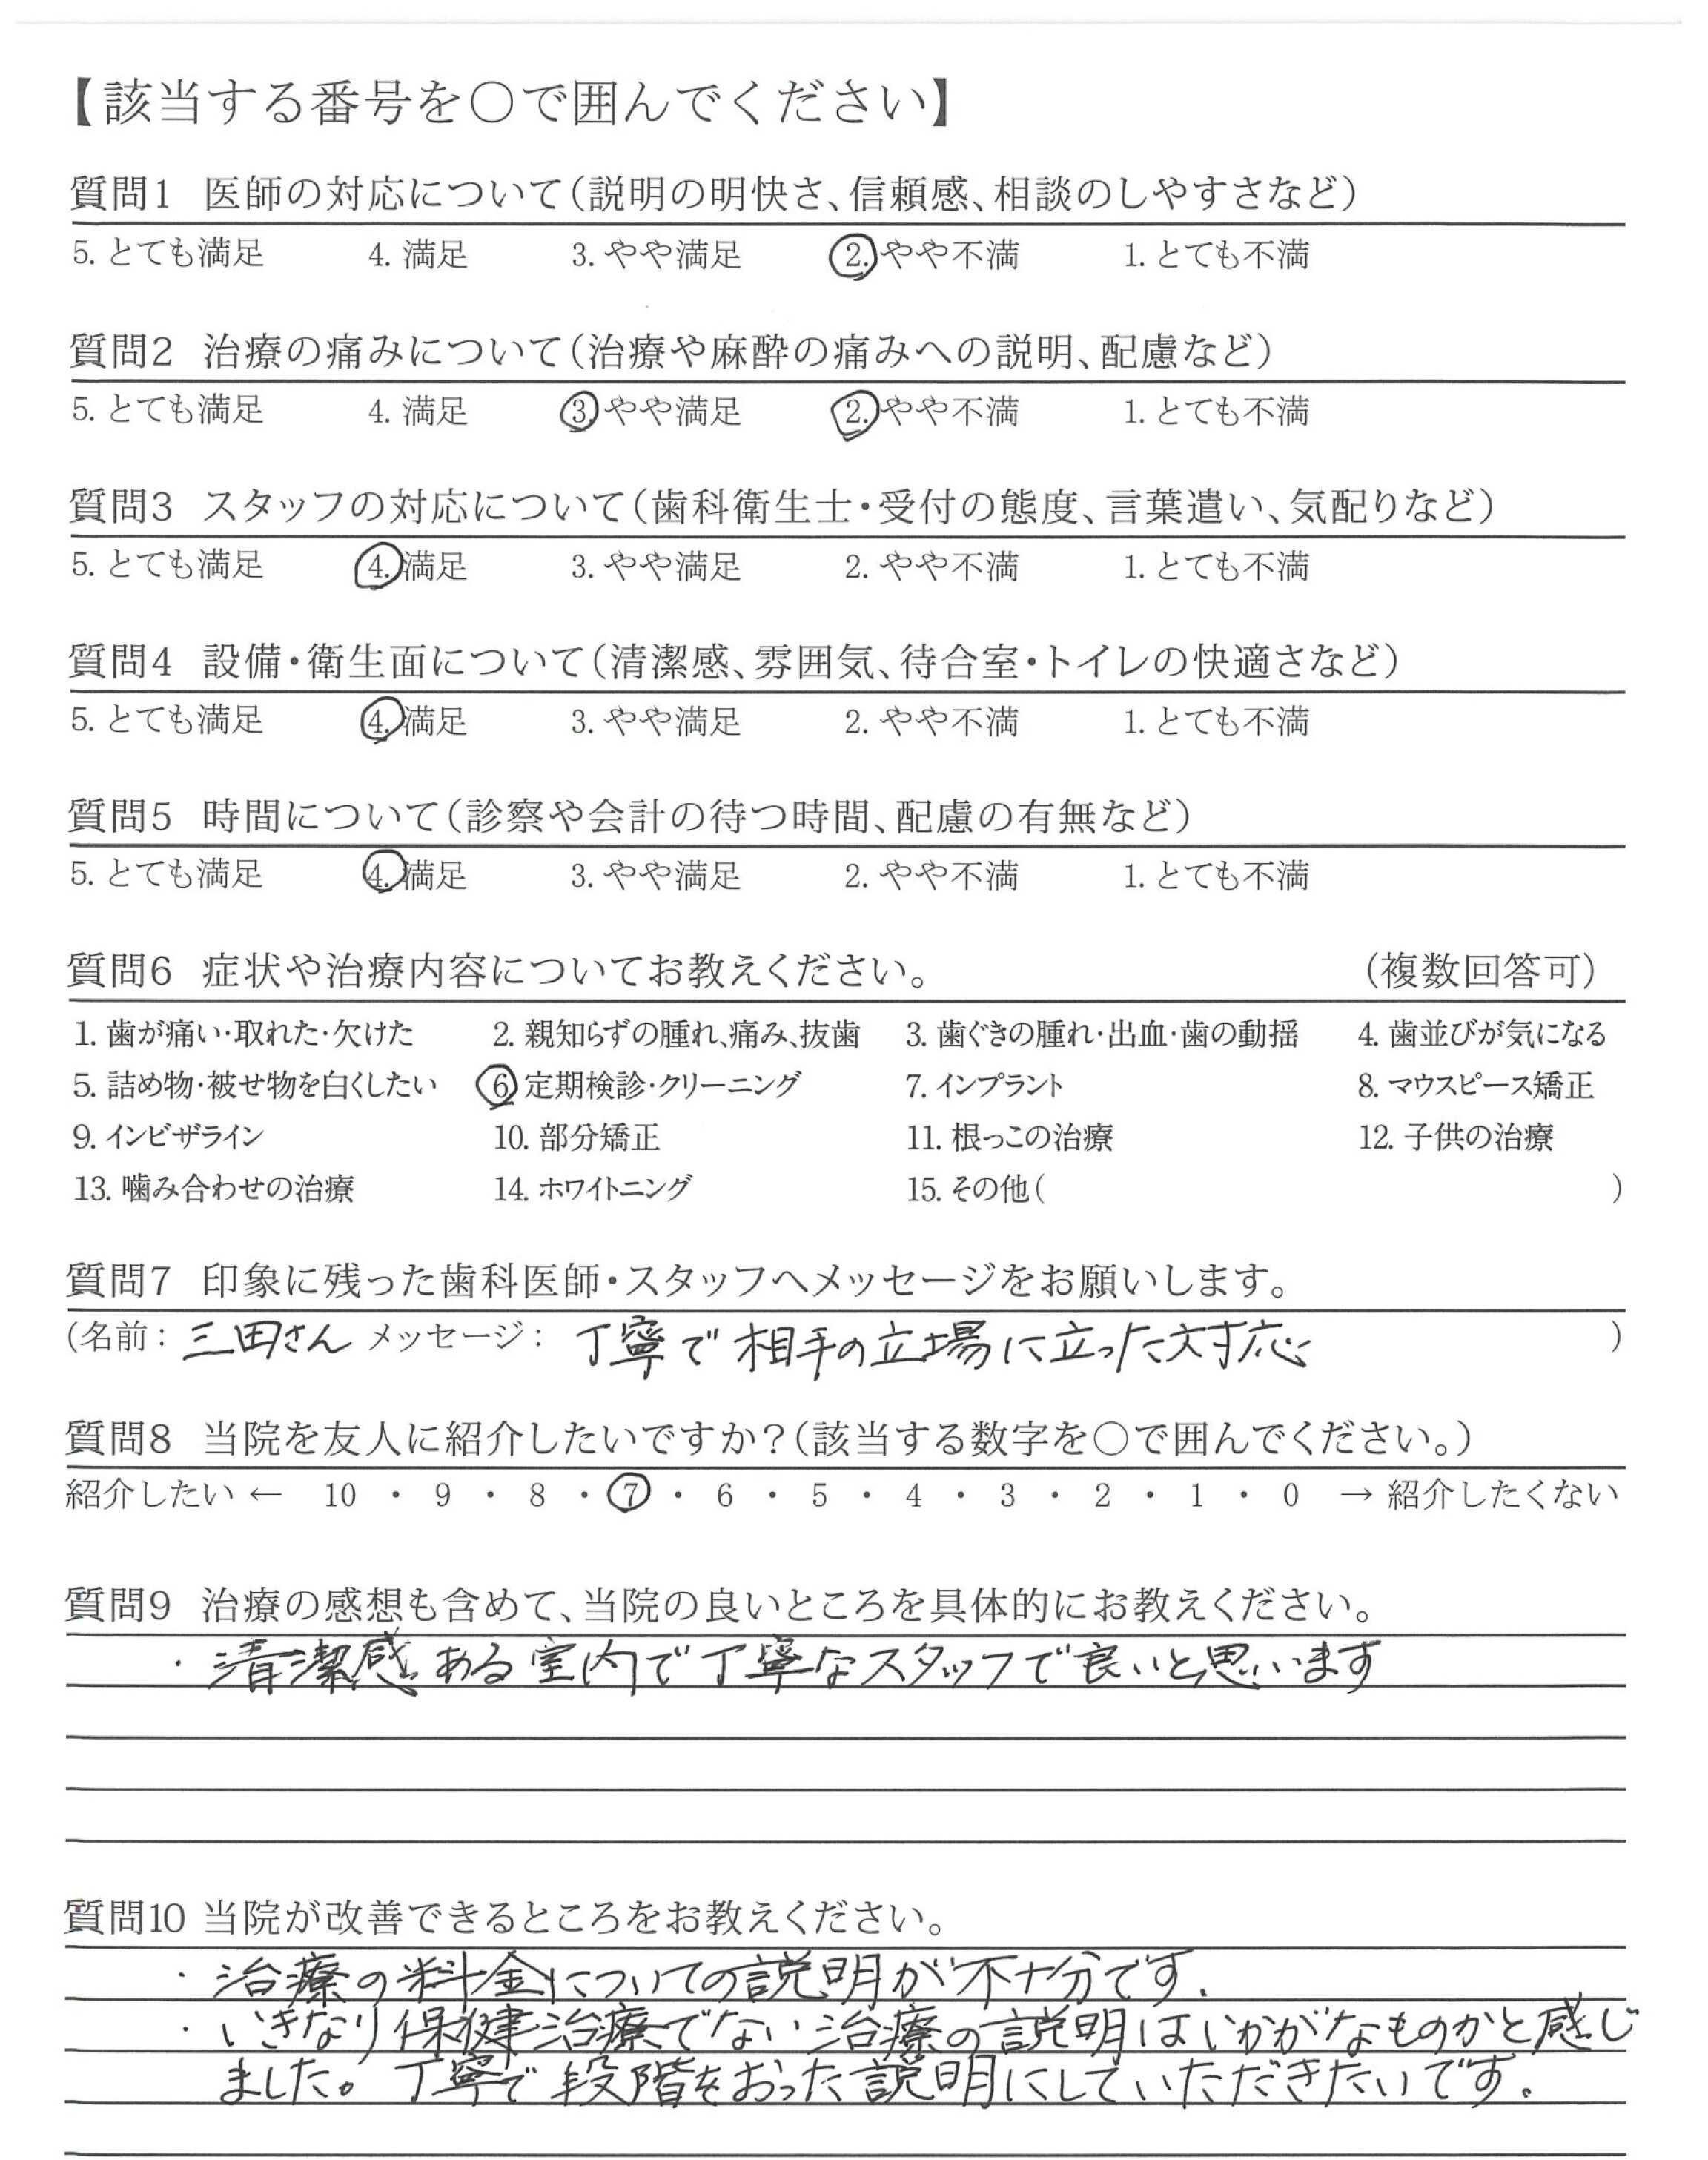 【該当する番号を〇で囲んでください】
質問1 医師の対応について(説明の明快さ、信頼感、相談のしやすさなど)
5. とても満足 4. 満足 3. やや満足 2. やや不満 1. とても不満
質問2 治療の痛みについて(治療や麻酔の痛みへの説明、配慮など)
5. とても満足 4. 満足 3. やや満足 2. やや不満 1. とても不満
質問3 スタッフの対応について(歯科衛生士・受付の態度、言葉遣い、気配りなど)
5. とても満足 4. 満足 3. やや満足 2. やや不満 1. とても不満
質問4 設備・衛生面について(清潔感、雰囲気、待合室・トイレの快適さなど)
5. とても満足 4. 満足 3. やや満足 2. やや不満 1. とても不満
質問5 時間について(診察や会計の待つ時間、配慮の有無など)
5. とても満足 4. 満足 3. やや満足 2. やや不満 1. とても不満
質問6 症状や治療内容についてお教えください。 (複数回答可)
1. 歯が痛い・取れた・欠けた 2. 親知らずの腫れ、痛み、抜歯 3. 歯ぐきの腫れ・出血・歯の動揺 4. 歯並びが気になる
5. 詰め物・被せ物を白くしたい 6. 定期検診・クリーニング 7. インプラント 8. マウスピース矯正
9. インビザライン 10. 部分矯正 11. 根っこの治療 12. 子供の治療
13. 噛み合わせの治療 14. ホワイトニング 15. その他( )
質問7 印象に残った歯科医師・スタッフへメッセージをお願いします。
(名前: 三田さん メッセージ: 丁寧で相手の立場に立った対応 )
質問8 当院を友人に紹介したいですか?(該当する数字を〇で囲んでください。)
紹介したい ← 10 ・ 9 ・ 8 ・ 7 ・ 6 ・ 5 ・ 4 ・ 3 ・ 2 ・ 1 ・ 0 → 紹介したくない
質問9 治療の感想も含めて、当院の良いところを具体的にお教えください。
・清潔感ある室内で丁寧なスタッフで良いと思います
質問10 当院が改善できるところをお教えください。
・治療の料金についての説明が不十分です.
・いきなり保健治療でない治療の説明はいかがなものかと感じ
ました。丁寧で段階をおった説明にしていただきたいです。